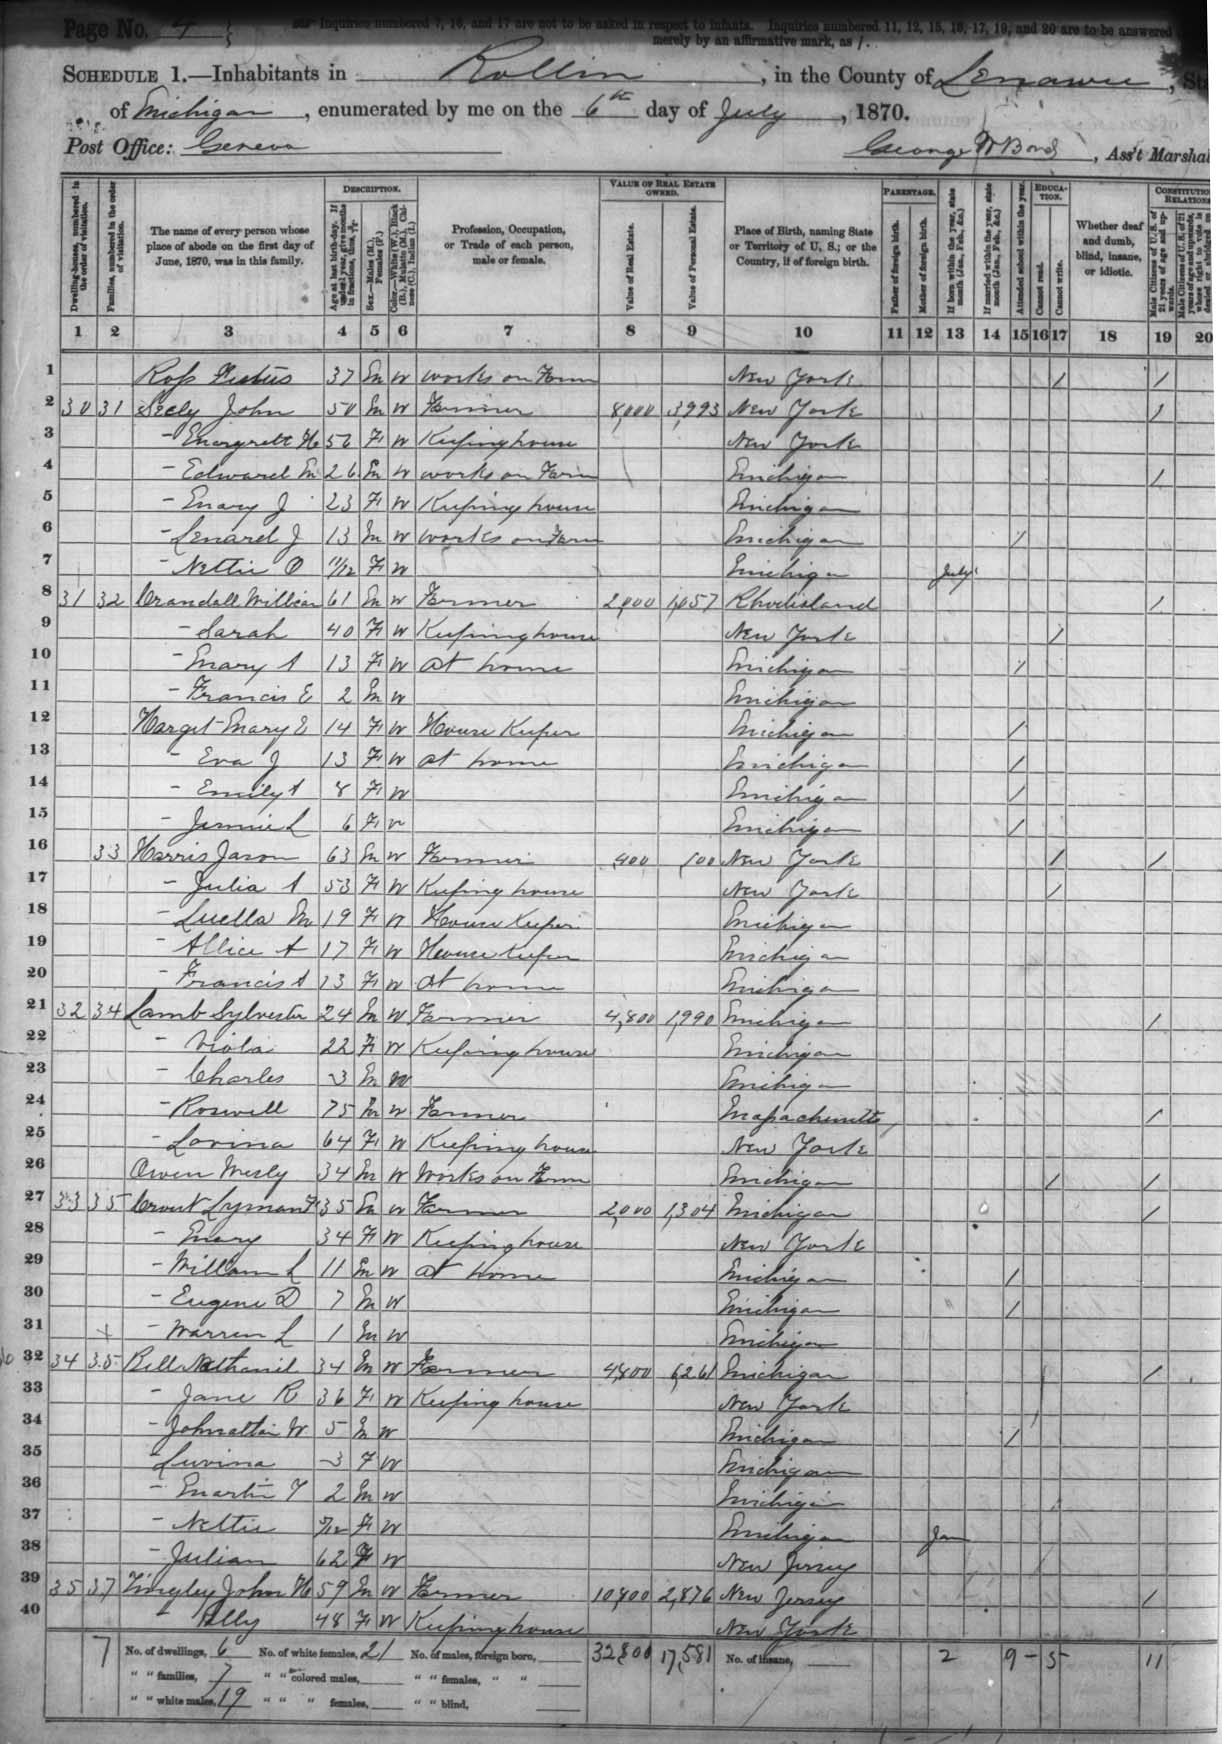 Page No. 4
Inquiries numbered 7, 16, and 17 are not to be asked in respect to infants. Inquiries numbered 11, 12, 15, 16, 17, 19, and 20 are to be answered
merely by an affirmative mark, as /.
SCHEDULE 1.—Inhabitants in Rollin, in the County of Lenawee, Sta
of Michigan, enumerated by me on the 6th day of July, 1870.
Post Office: Geneva George W Bond, Ass't Marshal
Dwelling-houses, numbered in the order of visitation.
Families, numbered in the order of visitation.
The name of every person whose place of abode on the first day of June, 1870, was in this family.
DESCRIPTION.
Age at last birth-day. If under 1 year, give months in fractions, thus, 3/12
Sex.—Males (M.), Females (F.)
Color.—White (W.), Black (B.), Mulatto (M.), Chinese (C.), Indian (I.)
Profession, Occupation, or Trade of each person, male or female.
VALUE OF REAL ESTATE OWNED.
Value of Real Estate.
Value of Personal Estate.
Place of Birth, naming State or Territory of U. S.; or the Country, if of foreign birth.
PARENTAGE.
Father of foreign birth.
Mother of foreign birth.
If born within the year, state month (Jan., Feb., &c.)
If married within the year, state month (Jan., Feb., &c.)
Attended school within the year.
EDUCATION.
Cannot read.
Cannot write.
Whether deaf and dumb, blind, insane, or idiotic.
CONSTITUTION
RELATIONS
Male Citizens of U.S. of 21 years of age and upwards.
1 2 3 4 5 6 7 8 9 10 11 12 13 14 15 16 17 18 19 20
1 Ross 37 M W works on Farm New York / /
2 30 31 Seely John 50 M W Farmer 8,000 3,993 New York /
3 – Margrett H 56 F W Keeping house New York
4 – Edward M 26 M W works on Farm Michigan /
5 – Mary J 23 F W Keeping house Michigan
6 – Lenard J 13 M W works on Farm Michigan /
7 – Nettie O 11/12 F W Michigan July
8 31 32 Crandall William 61 M W Farmer 2,000 1,057 Rhodisland /
9 – Sarah 40 F W Keeping house New York /
10 – Mary A 13 F W at home Michigan /
11 – Francis E 2 M W Michigan
12 Harget Mary E 14 F W House Keeper Michigan /
13 – Eva J 13 F W at home Michigan /
14 – Emily A 8 F W Michigan /
15 – Jennie L 6 F W Michigan /
16 33 Harris Jason 63 M W Farmer 400 100 New York / /
17 – Julia A 53 F W Keeping house New York /
18 – Luella M 19 F W House Keeper Michigan
19 – Allice A 17 F W House Keeper Michigan
20 – Francis A 13 F W at home Michigan
21 32 34 Lamb Sylvester 24 M W Farmer 4,800 1,990 Michigan /
22 – Viola 22 F W Keeping house Michigan
23 – Charles 3 M W Michigan
24 – Roswell 75 M W Farmer Massachusetts /
25 – Lovina 64 F W Keeping house New York
26 Owen Wesly 34 M W Works on Farm Michigan / /
27 33 35 Lyman 35 M W Farmer 2,000 1,304 Michigan /
28 – Mary 34 F W Keeping house New York
29 – William L 11 M W at home Michigan /
30 – Eugene D 7 M W Michigan /
31 – Warren L 1 M W Michigan
32 34 35 Bell Nathanil 34 M W Farmer 4,800 6,261 Michigan /
33 – Jane R 36 F W Keeping house New York
34 – W 5 M W Michigan /
35 – Luvina 3 F W Michigan
36 – Martin T 2 M W Michigan
37 – Nettie F W Michigan Jan
38 – Julian 62 F W New Jersey
39 35 37 Tingley John H 59 M W Farmer 10,800 2,876 New Jersey /
40 – Polly 48 F W Keeping house New York
7 No. of dwellings, 6 No. of white females, 21 No. of males, foreign born, 32,800 17,581 No. of insane, 2 9 – 5 11
" " families, 7 " " colored males, " " females, " "
" " white males, 19 " " " females, " " blind,